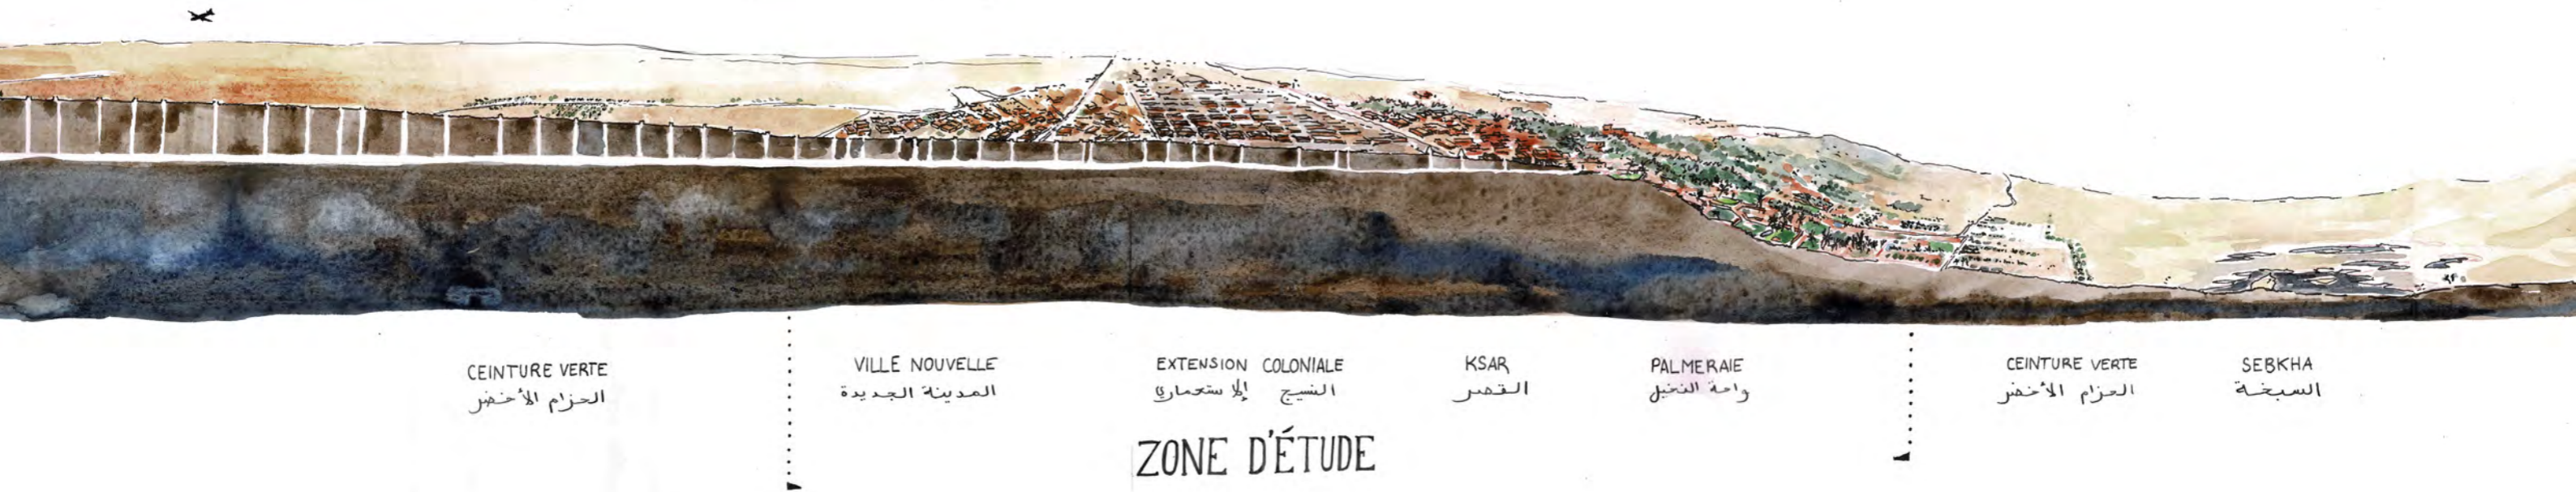 CEINTURE VERTE
الحزام الأخضر
VILLE NOUVELLE
المدينة الجديدة
EXTENSION COLONIALE
النسيج الإستعماري
KSAR
القصر
PALMERAIE
واحة النخيل
CEINTURE VERTE
الحزام الأخضر
SEBKHA
السبخة
ZONE D'ÉTUDE